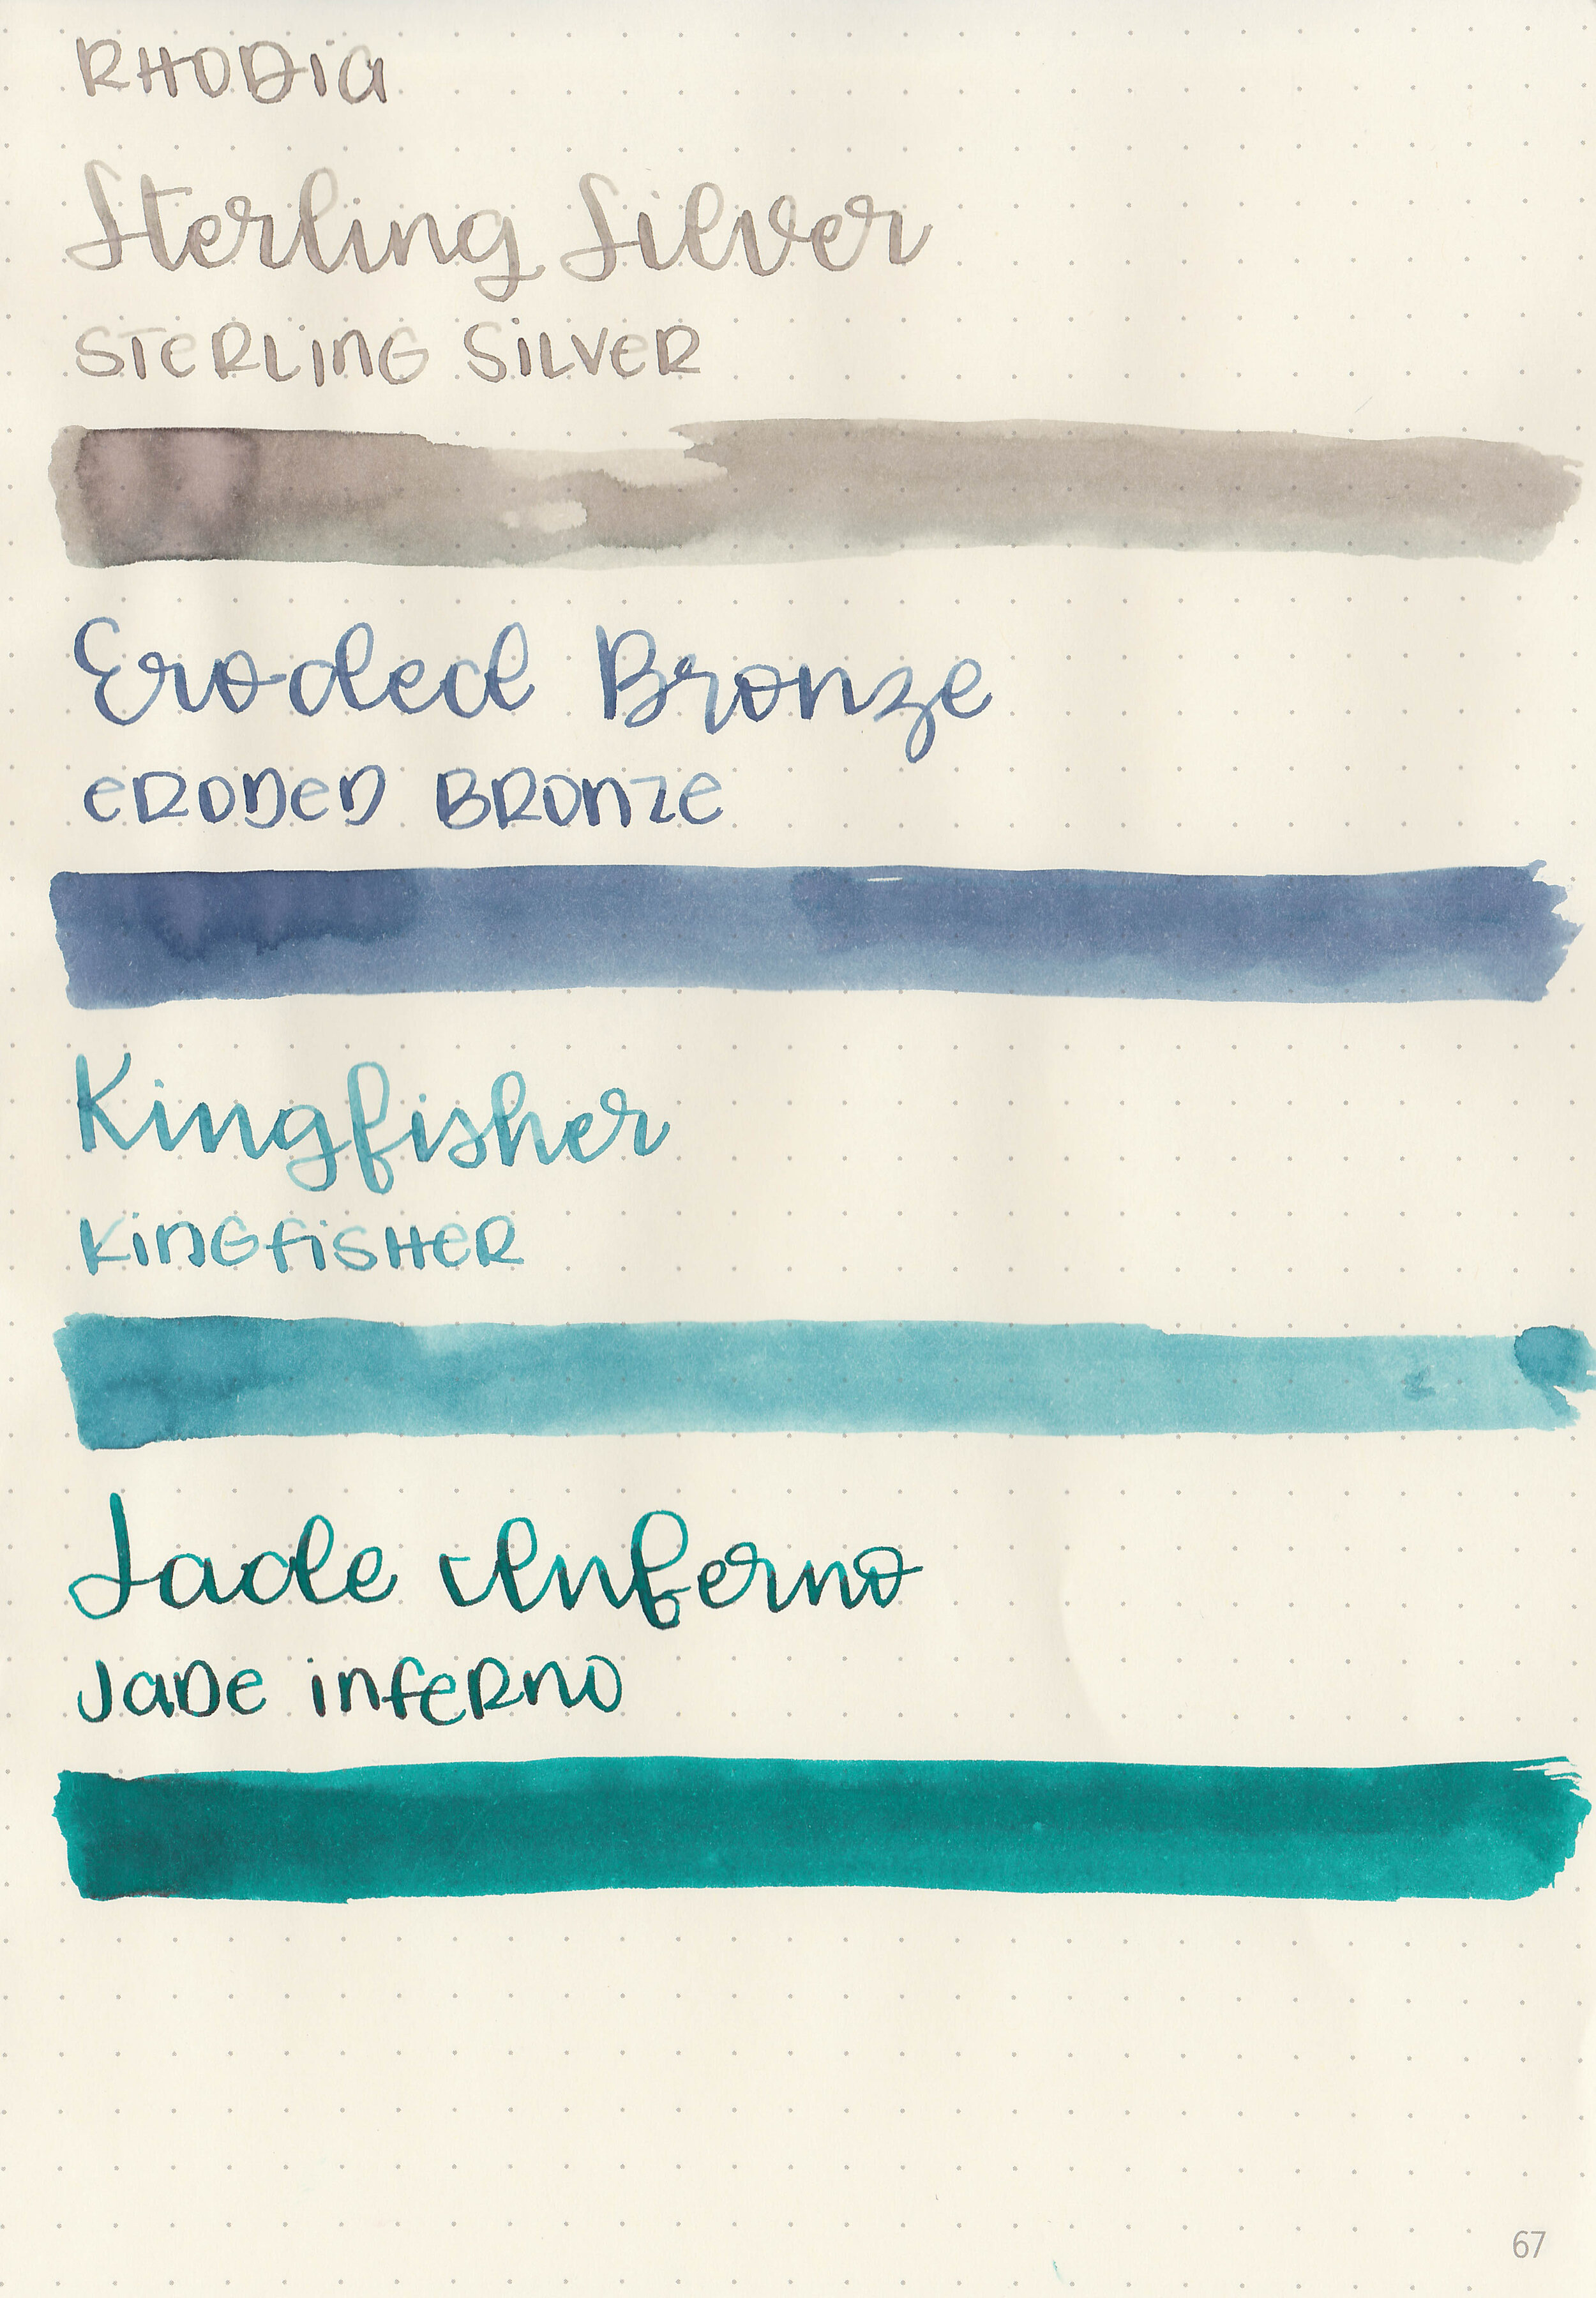 RHODia
Sterling Silver
STeRLinG SiLVeR
Eroded Bronze
eRODeD BROnze
Kingfisher
KinGfisHeR
Jade Inferno
JaDe infeRnO
67